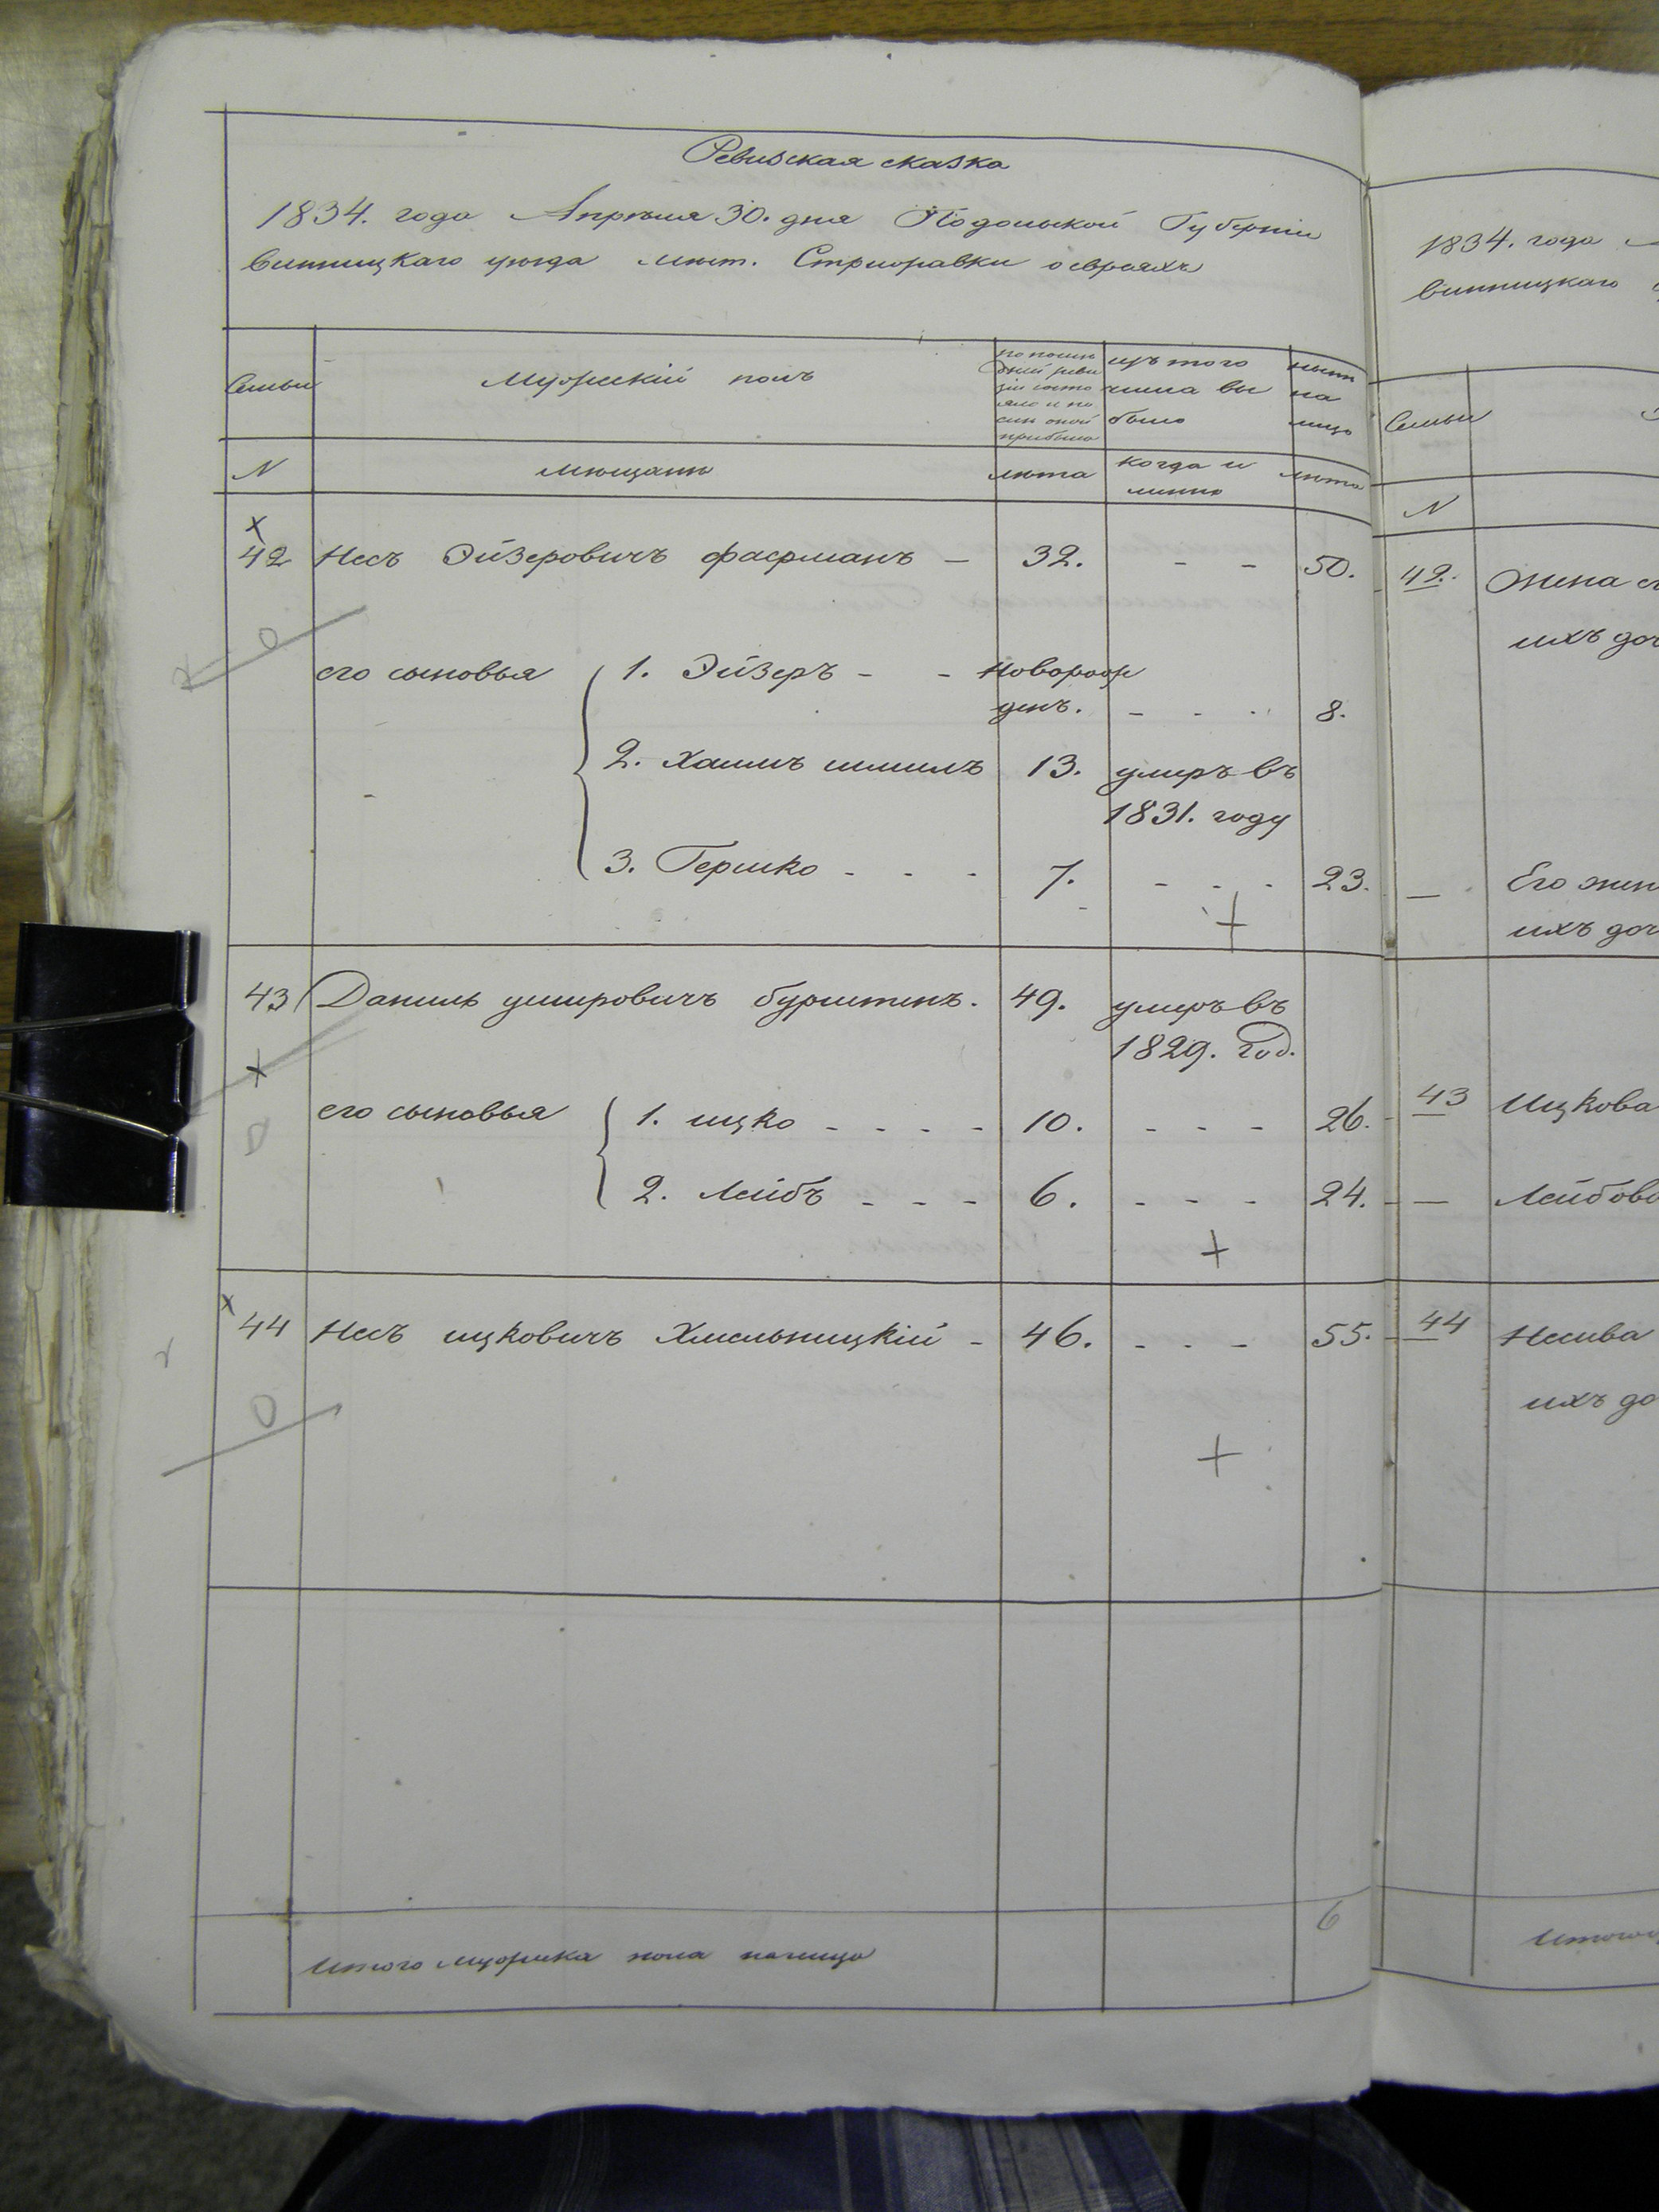 Ревизская сказка
1834. года Апрѣля 30. дня Подольской Губерніи
винницкаго уѣзда мѣст. Стрижавки о евреяхъ
Семьи
Мужескій полъ
по послѣ
дней реви
зіи состо
яло и по
слѣ оной
прибыло
изъ того
числа вы
было
нынѣ
на
лицо
N
мѣщанѣ
лѣта
когда и
лѣта
42
Несъ Эйзеровичъ фасрманъ —
32.
- -
50.
его сыновья
1. Эйзеръ - -
новорож
денъ.
- - -
8.
2. Хаимъ шмилъ
13.
умеръ въ
1831. году
3. Гершко - - -
7.
- - -
23.
43
Даниль умировичъ бурштенъ.
49.
умеръ въ
1829. год.
его сыновья
1. ицко - - - -
10.
- - -
26.
2. Лейбъ - - -
6.
- - -
24.
44
Несъ ицковичъ Хмельницкій -
46.
- - -
55.
6
Итого мужеска пола налицо
1834. года
винницкаго
Семьи
N
42.
Жена
ихъ доч
—
Его жен
ихъ доч
43
Ицкова
—
Лейбова
44
Несива
ихъ до
Итого